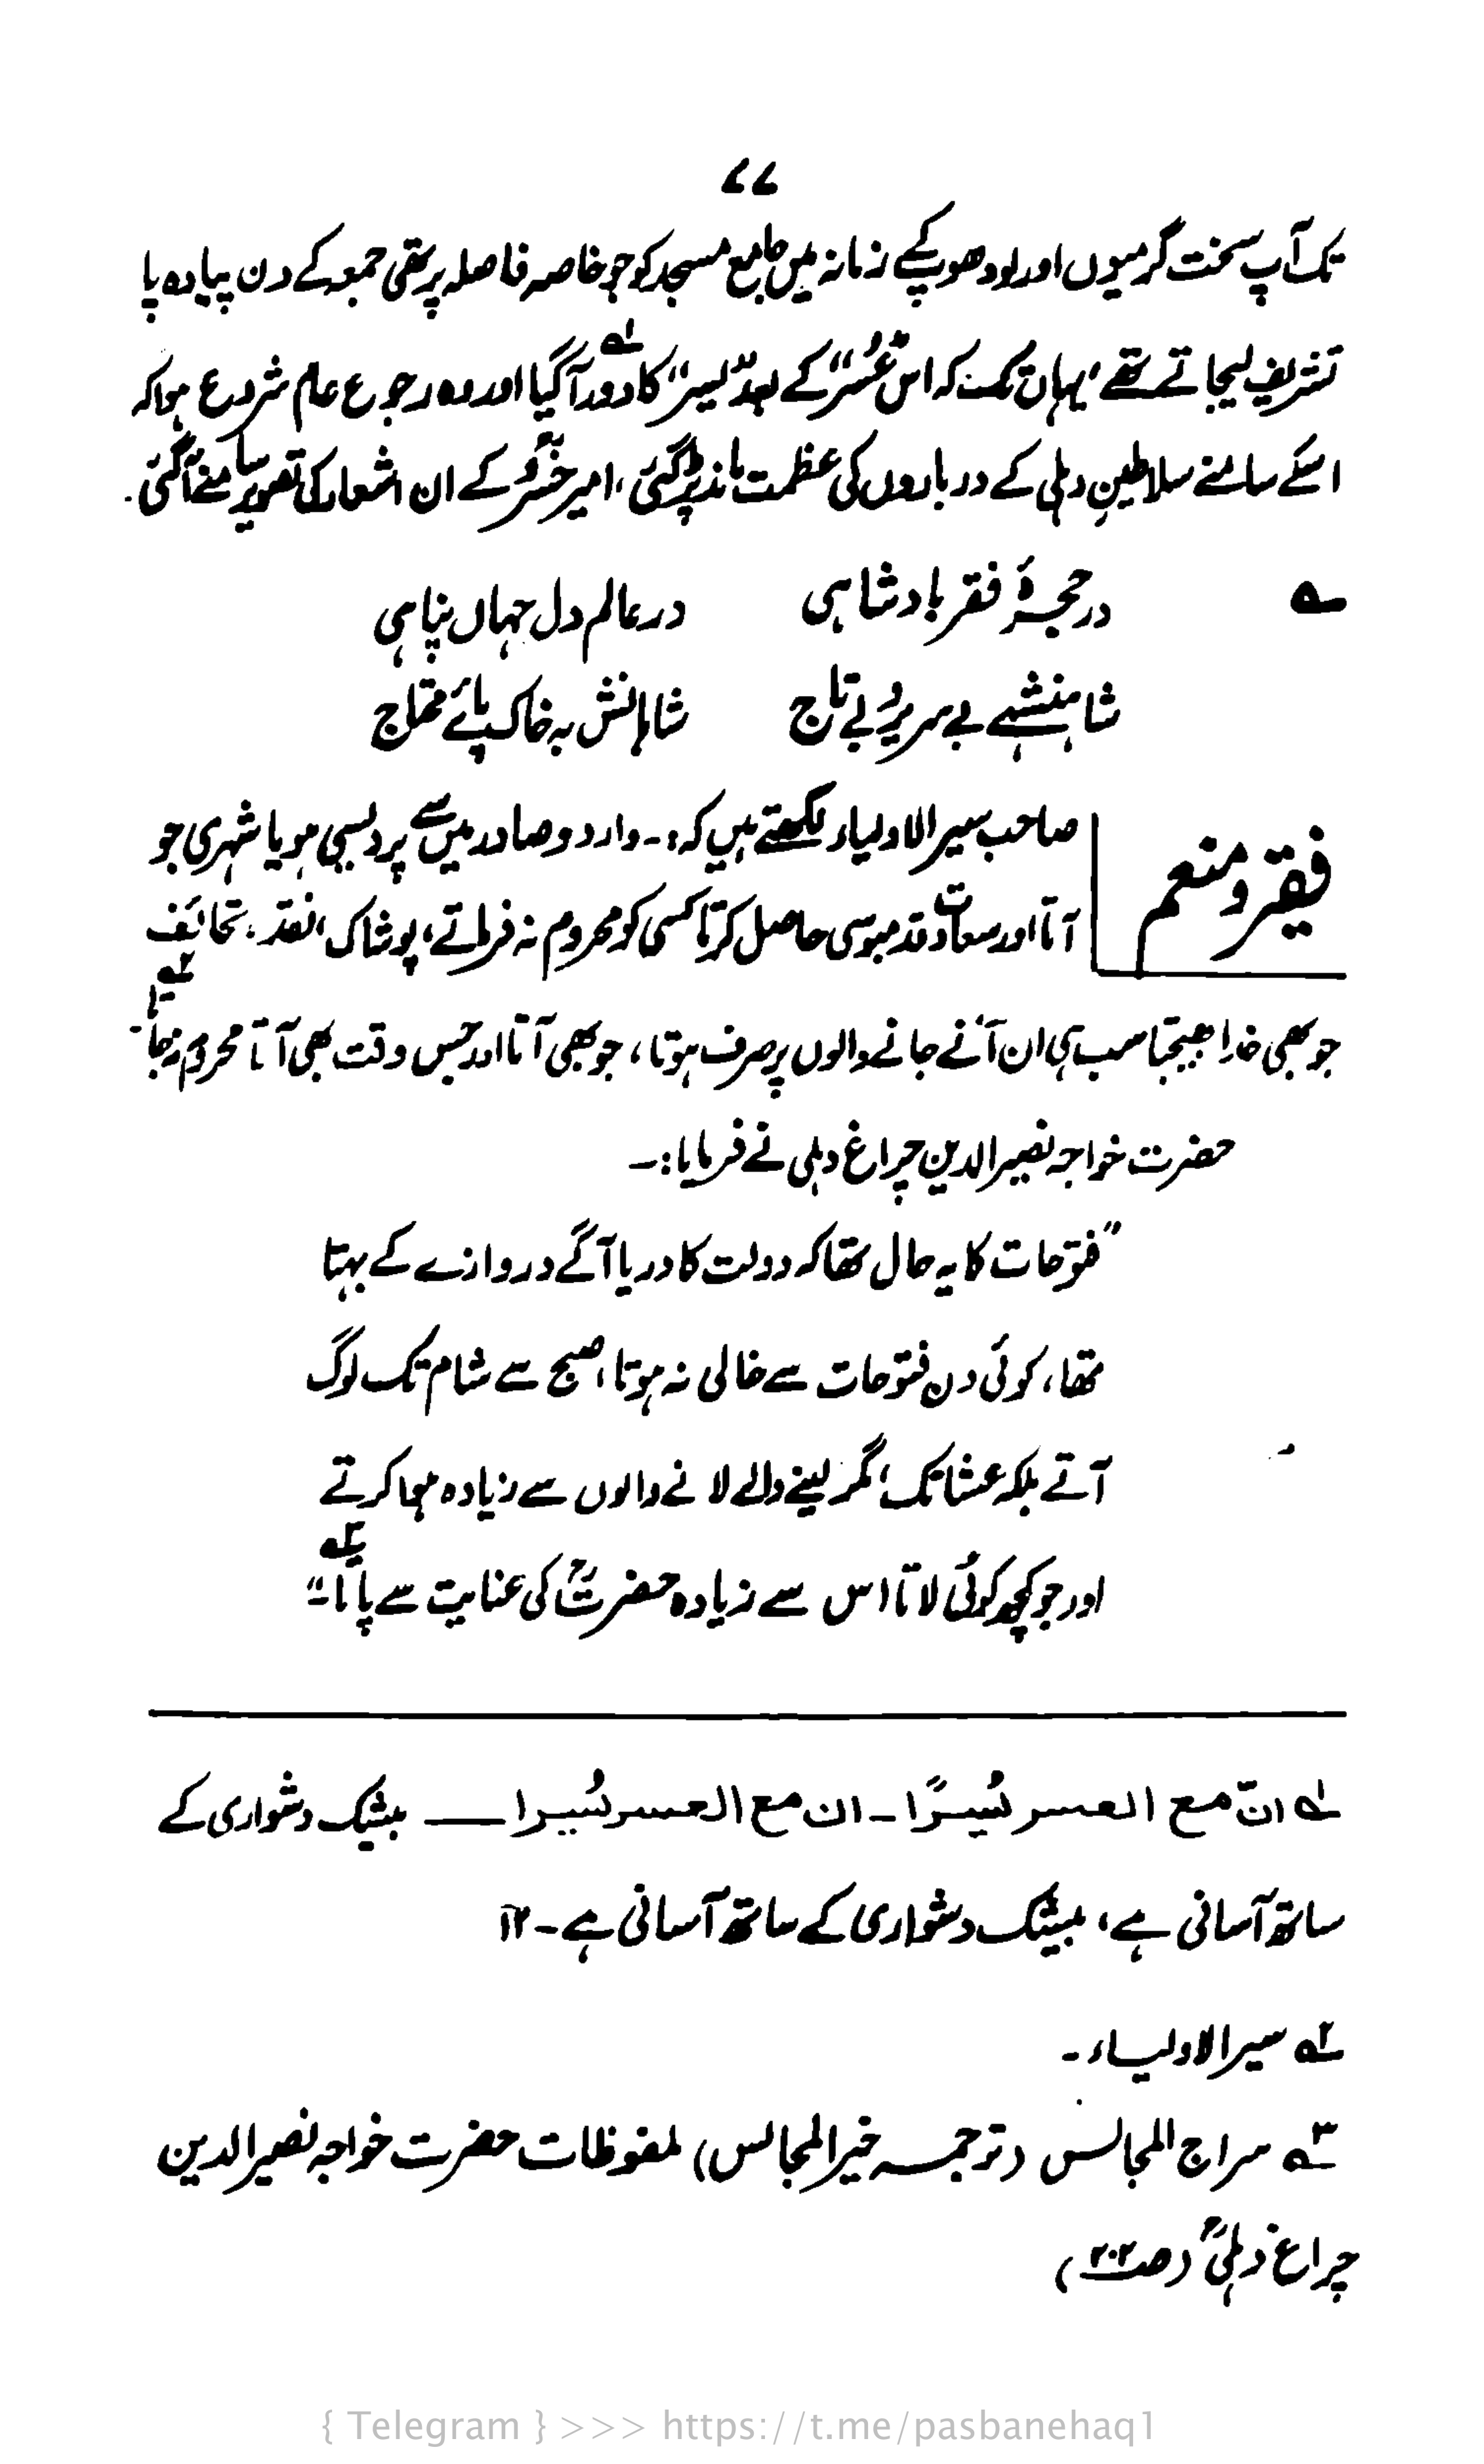 ۷۷
تک آپ سخت گرمیوں اور لو دھوپ کے زمانہ میں جامع مسجد کو جو خاصہ فاصلہ پر تھی جمعہ کے دن پیادہ پا
تشریف لیجاتے تھے، یہاں تک کہ اس "عُسْر" کے بعد "یسر" کا دور آگیا لہ اور وہ رجوع عام شروع ہوا کہ
اسکے سامنے سلاطینِ دہلی کے درباروں کی عظمت ماند پڑ گئی، امیر خسروؒ کے ان اشعار کی تصویر سامنے آگئی۔
؎ در حجرۂ فقر بادشاہی در عالم دل جہاں پناہی
شاہنشہے بے سریر و بے تاج شاہانش بہ خاک پائے محتاج
فقیر و منعم
صاحب سیر الاولیاء لکھتے ہیں کہ:۔ وارد و صادر میں سے پردیسی ہو یا شہری جو
آتا اور سعادت قدمبوسی حاصل کرتا کسی کو محروم نہ فرماتے، پوشاک، نقد، تحائف
جو بھی خدا بھیجتا سب ہی ان آنے جانے والوں پر صرف ہوتا، جو بھی آتا اور جس وقت بھی آتا محروم نہ جاتا۔ ۲ہ
حضرت خواجہ نصیر الدین چراغ دہلی نے فرمایا:۔
"فتوحات کا یہ حال تھا کہ دولت کا دریا آگے دروازے کے بہتا
تھا، کوئی دن فتوحات سے خالی نہ ہوتا، صبح سے شام تک لوگ
آتے بلکہ عشا تک، مگر لینے والے لانے والوں سے زیادہ ہوا کرتے
اور جو کچھ کوئی لاتا اس سے زیادہ حضرتؒ کی عنایت سے پاتا۔" ۳ہ
لہ انّ مع العسر یُسرًا۔ ان مع العسر یُسرا —— بیشک دشواری کے
ساتھ آسانی ہے، بیشک دشواری کے ساتھ آسانی ہے۔ ۱۲
۲ہ سیر الاولیاء۔
۳ہ سراج المجالس (ترجمہ خیر المجالس) ملفوظات حضرت خواجہ نصیر الدین
چراغ دہلیؒ (صـ۲۰۲)
{ Telegram } >>> https://t.me/pasbanehaq1